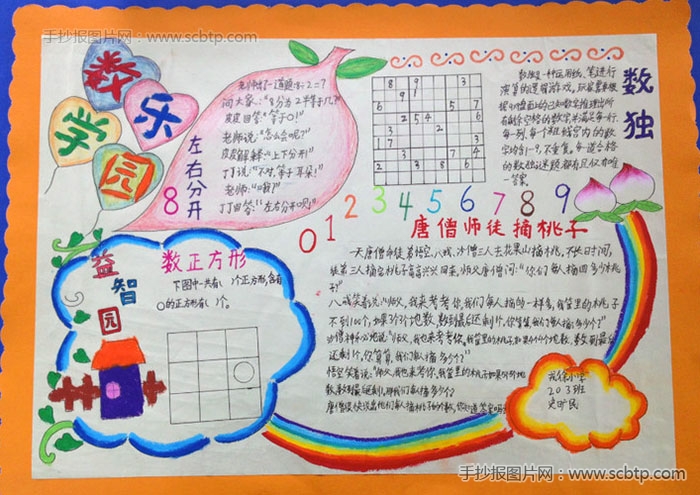 手抄报图片网：www.scbtp.com
数学乐园
左右分开
8
老师出了一道题:8÷2=?
问大家:"8分为2半等于几?"
皮皮回答:"等于0!"
老师说:"怎么会呢?"
皮皮解释:"上下分开!"
丁丁说:"不对,等于耳朵!"
老师:"哦?"
丁丁回答:"左右分开呗!"
数独
数独是一种运用纸、笔进行
演算的逻辑游戏,玩家需要根
据9×9盘面上的已知数字,推理出所
有剩余空格的数字,并满足每一行、
每一列、每个粗线宫内的数
字均含1-9,不重复。每一道合格
的数独谜题都有且仅有唯一
答案。
0 1 2 3 4 5 6 7 8 9
益智园
数正方形
下图中一共有( )个正方形,含有
O的正方形有( )个。
唐僧师徒摘桃子
一天,唐僧师徒悟空、八戒、沙僧三人去花果山摘桃子,不长时间,
徒弟三人摘完桃子高高兴兴回来,师父唐僧问:"你们每人摘回多少个桃
子?
八戒笑着说:"师父,我来考考你,我们每人摘的一样多,我筐里的桃子
不到100个,如果3个3个地数,数到最后还剩1个,你算算,我们每人摘了多少个?"
沙僧神秘地说:"师父,我也来考考你,我筐里的桃子,如果4个4个地数,数到最后
还剩1个,你算算,我们每人摘了多少个?
悟空笑着说:"师父,我也来考你,我筐里的桃子,如果5个5个地
数,数到最后还剩1个,那我们每人摘了多少个?
唐僧很快说出他们每人摘桃子的个数,你知道答案吗?
小学
203班
手抄报图片网：www.scbtp.com